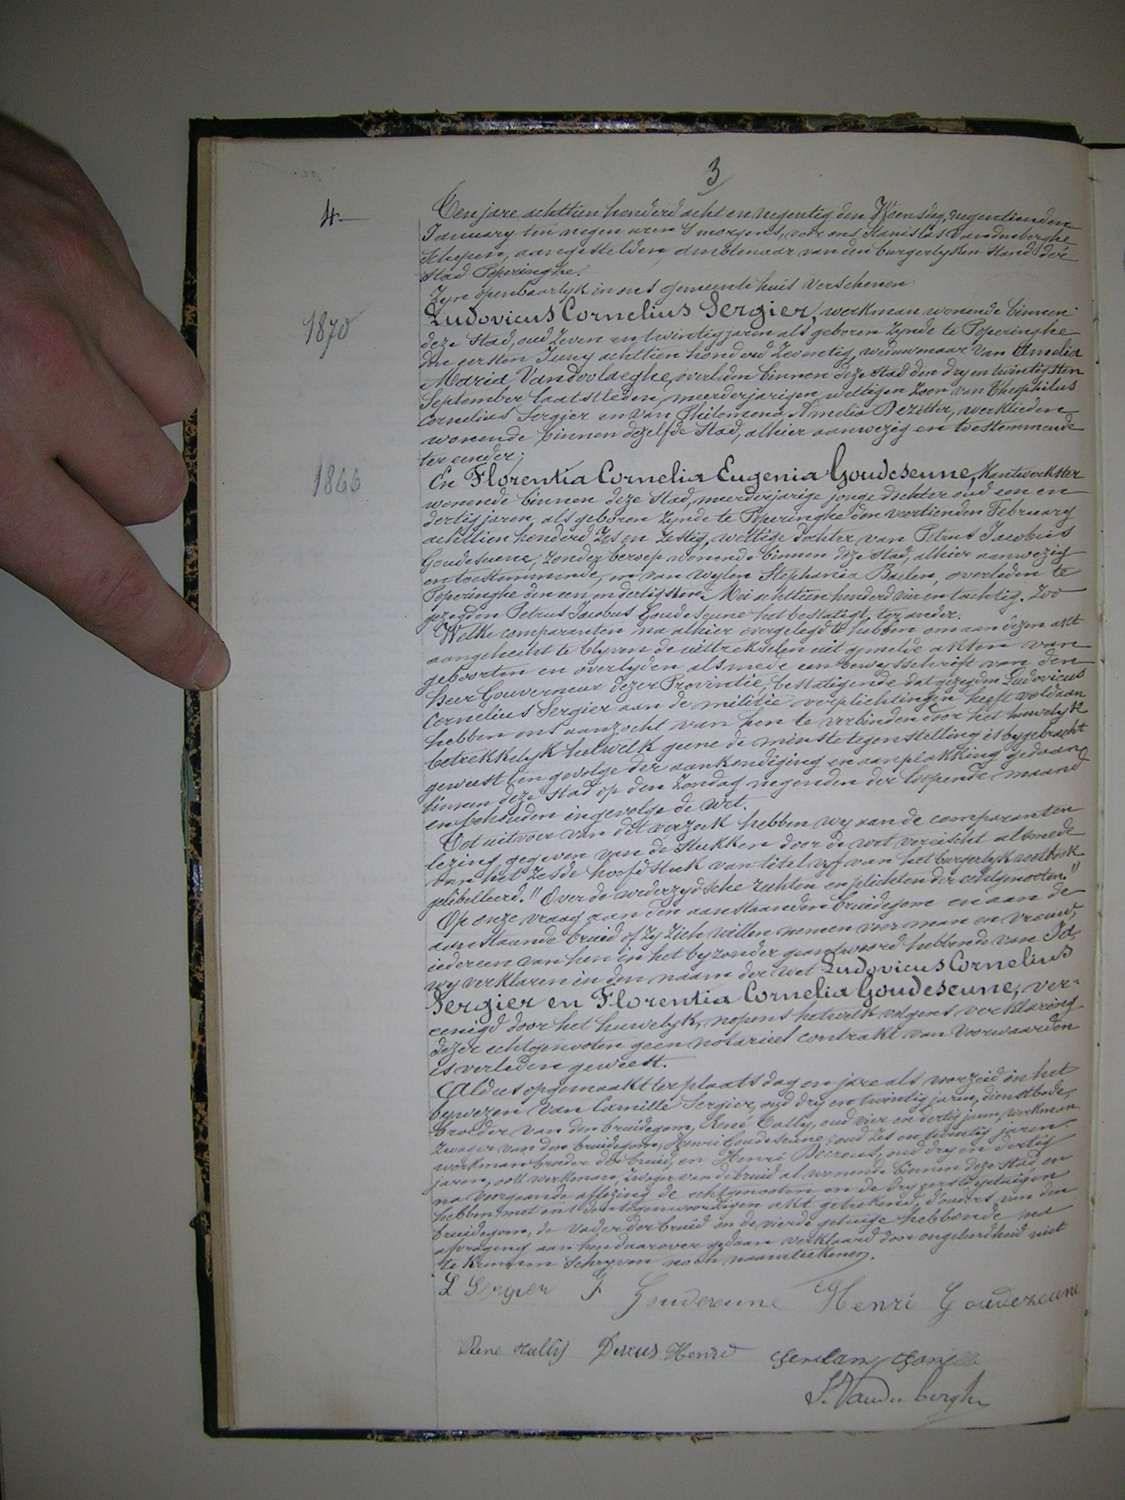 3
4
Ten jare achttien honderd acht en negentig den Woensdag, negentienden
January ten negen uren 's morgens, voor ons Stanislas Vandenberghe
Schepen, aangestelden ambtenaar van den burgerlyken stand der
stad Poperinghe.
Zyn openbaarlyk in ons gemeente huis verschenen
Ludovicus Cornelius Sergier, werkman wonende binnen
1870
deze stad, oud zeven en twintig jaren als geboren zynde te Poperinghe
den eersten Juny achttien honderd zeventig, weduwenaar van Amelia
Maria Vandevlaeghe, overleden binnen deze stad den dry en twintigsten
September laatstleden, meerderjarigen wettigen zoon van Theophilus
Cornelius Sergier en van Philemena Amelia Dezitter, werklieden
wonende binnen dezelfde stad, alhier aanwezig en toestemmende
ter eender;
1866
En Florentia Cornelia Eugenia Goudeseune, Kantwerkster
wonende binnen deze stad, meerderjarige jonge dochter oud een en
dertig jaren, als geboren zynde te Poperinghe den veertienden February
achttien honderd zes en zestig, wettige dochter van Petrus Jacobus
Goudeseune, zonder beroep wonende binnen deze stad, alhier aanwezig
en toestemmende, en van wylen Stephania Baelen, overleden te
Poperinghe den een en dertigsten Mei achttien honderd vier en tachtig. Zoo
gezegden Petrus Jacobus Goudeseune het bestatigt, ter ander.
Welke comparanten na alhier overgelegd te hebben om aan dezen akt
aangehecht te blyven de uittrekselen uit gemelde akten van
geboorten en overlyden alsmede een bewysschrift van den
Heer Gouverneur dezer Provintie, bestatigende dat gezegden Ludovicus
Cornelius Sergier aan de militie verplichtingen heeft voldaan
hebben ons aanzocht van hen te verbinden door het huwelyk
betrekkelyk hetwelk geene de minste tegenstelling is bygebracht
geweest ten gevolge der aankondiging en aanplakking gedaan
binnen deze stad op den Zondag negenden der loopende maand
en gehouden ingevolge de wet.
Tot uitvoer van dit verzoek hebben wy aan de comparanten
lezing gegeven van de stukken door de wet vereischt alsmede
van het zesde hoofdstuk van titel vyf van het burgerlyk wetboek
gelibelleerd "Over de wederzydsche rechten en plichten der echtgenooten."
Op onze vraag aan den aanstaanden bruidegom en aan de
aanstaande bruid of zy zich willen nemen voor man en vrouw,
iedereen van hen in het byzonder geantwoord hebbende van Ja,
wy verklaren in den naam der wet Ludovicus Cornelius
Sergier en Florentia Cornelia Goudeseune, ver-
eenigd door het huwelyk, nopens hetwelk volgens verklaring
dezer echtgenooten geen notarieel contrakt van voorwaarden
is verleden geweest.
Aldus opgemaakt ter plaats dag en jare als voorzeid in het
bywezen van Camille Sergier, oud dry en twintig jaren, dienstbode,
broeder van den bruidegom, René Cally, oud vier en dertig jaren, werkman
zwager van den bruidegom, Henri Goudeseune, oud zes en twintig jaren
werkman broeder der bruid, en Henri Decreus, oud dry en dertig
jaren, ook werkman, zwager van de bruid al wonende binnen deze stad, en
na voorgaande aflezing de echtgenooten en de dry eerste getuigen
hebben met ons dien tegenwoordigen akt geteekend, d'ouders van den
bruidegom, de vader der bruid en de vierde getuige hebbende na
afvraging aan hen daarover gedaan verklaard door ongeleerdheid niet
te kunnen schryven noch naamteekenen.
L Sergier F Goudeseune Henri Goudezeune
Rene Cally Decreus Henri
S. Vandenberghe